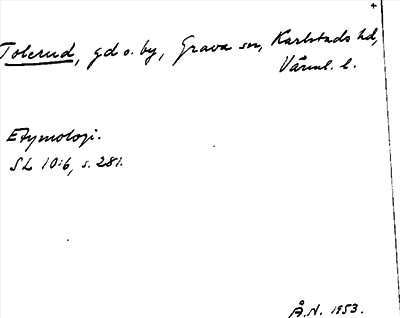 Tolerud, gd o. by, Grava sn, Karlstads hd,
Värml. l.
Etymologi.
SL 10:6, s. 281.
Å.N. 1953.